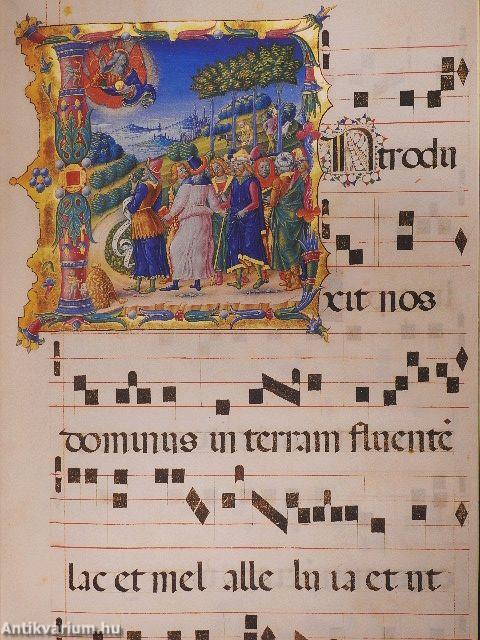 Introdu
xit nos
dominus in terram fluentē
lac et mel alle lu ia et ut
Antikvarium.hu